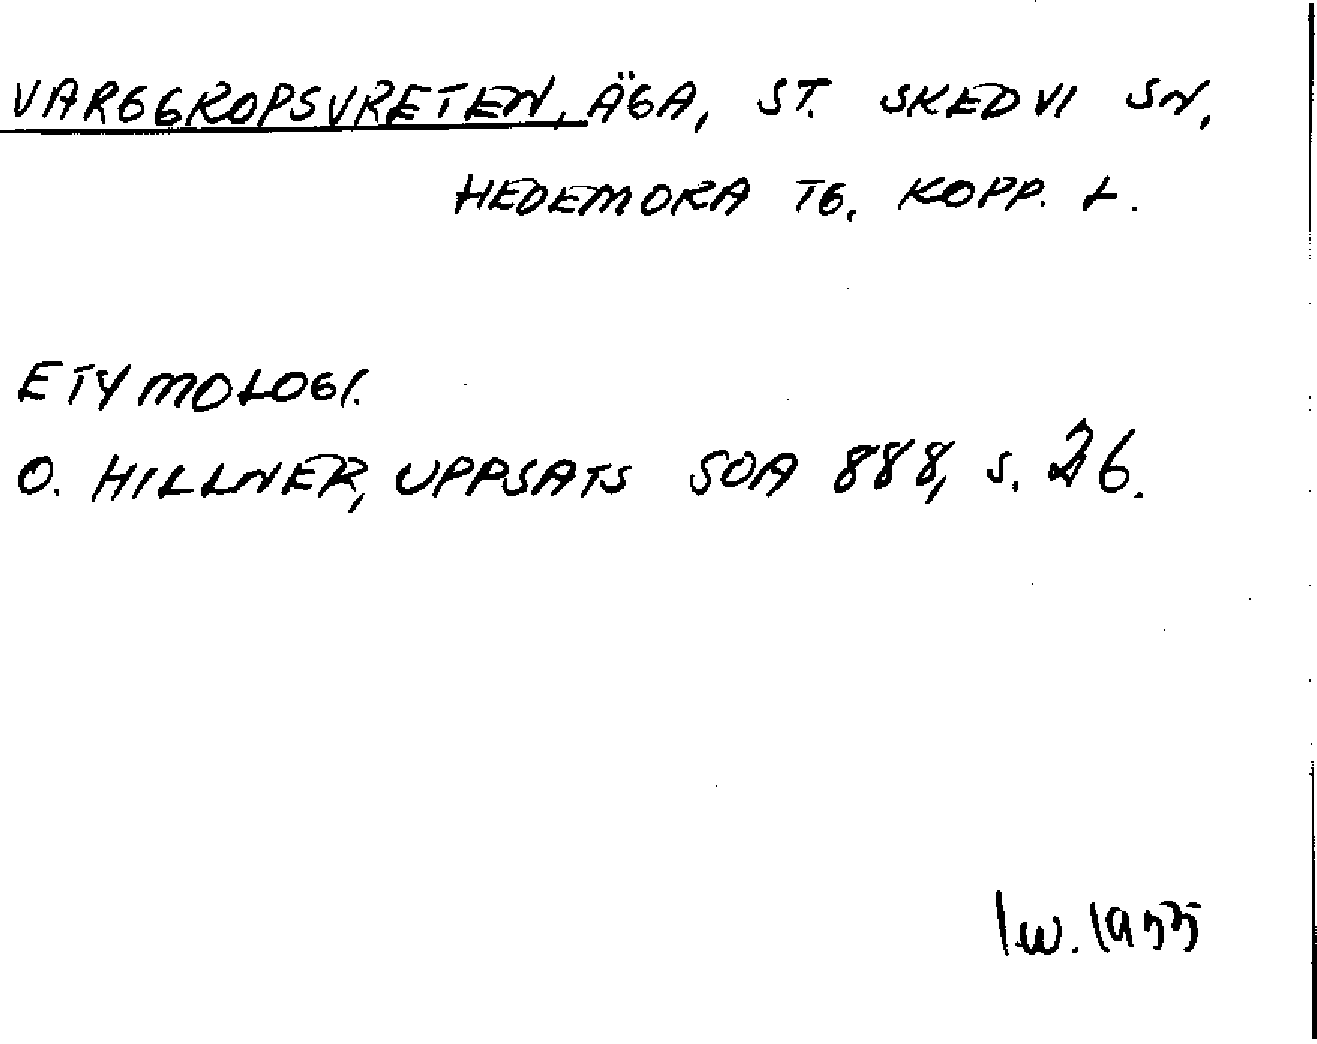 VARGGROPSVRETEN, ÄGA, ST. SKEDVI SN,
HEDEMORA TG. KOPP. L.
ETYMOLOGI.
O. HILLNER, UPPSATS SOA 888, s. 26.